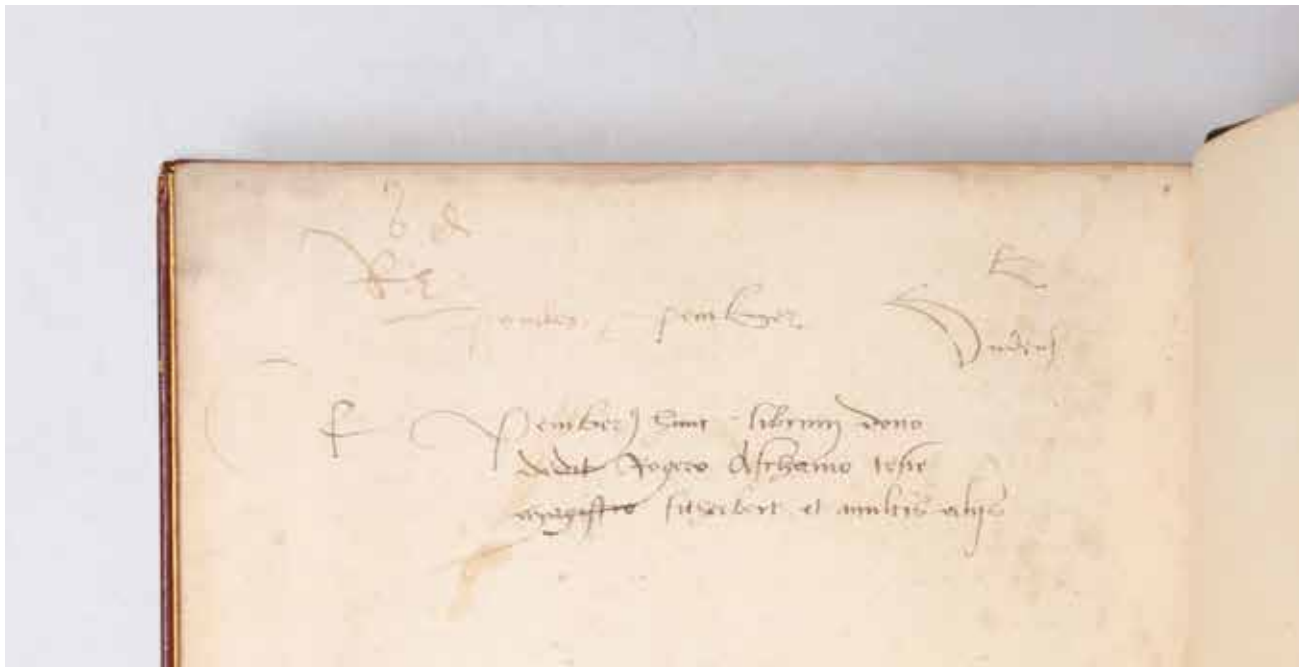 b d
E
pember
f Pember hunc librum dono
dedit Rogero Aschamo teste
magistro fitzerbert et multis alijs